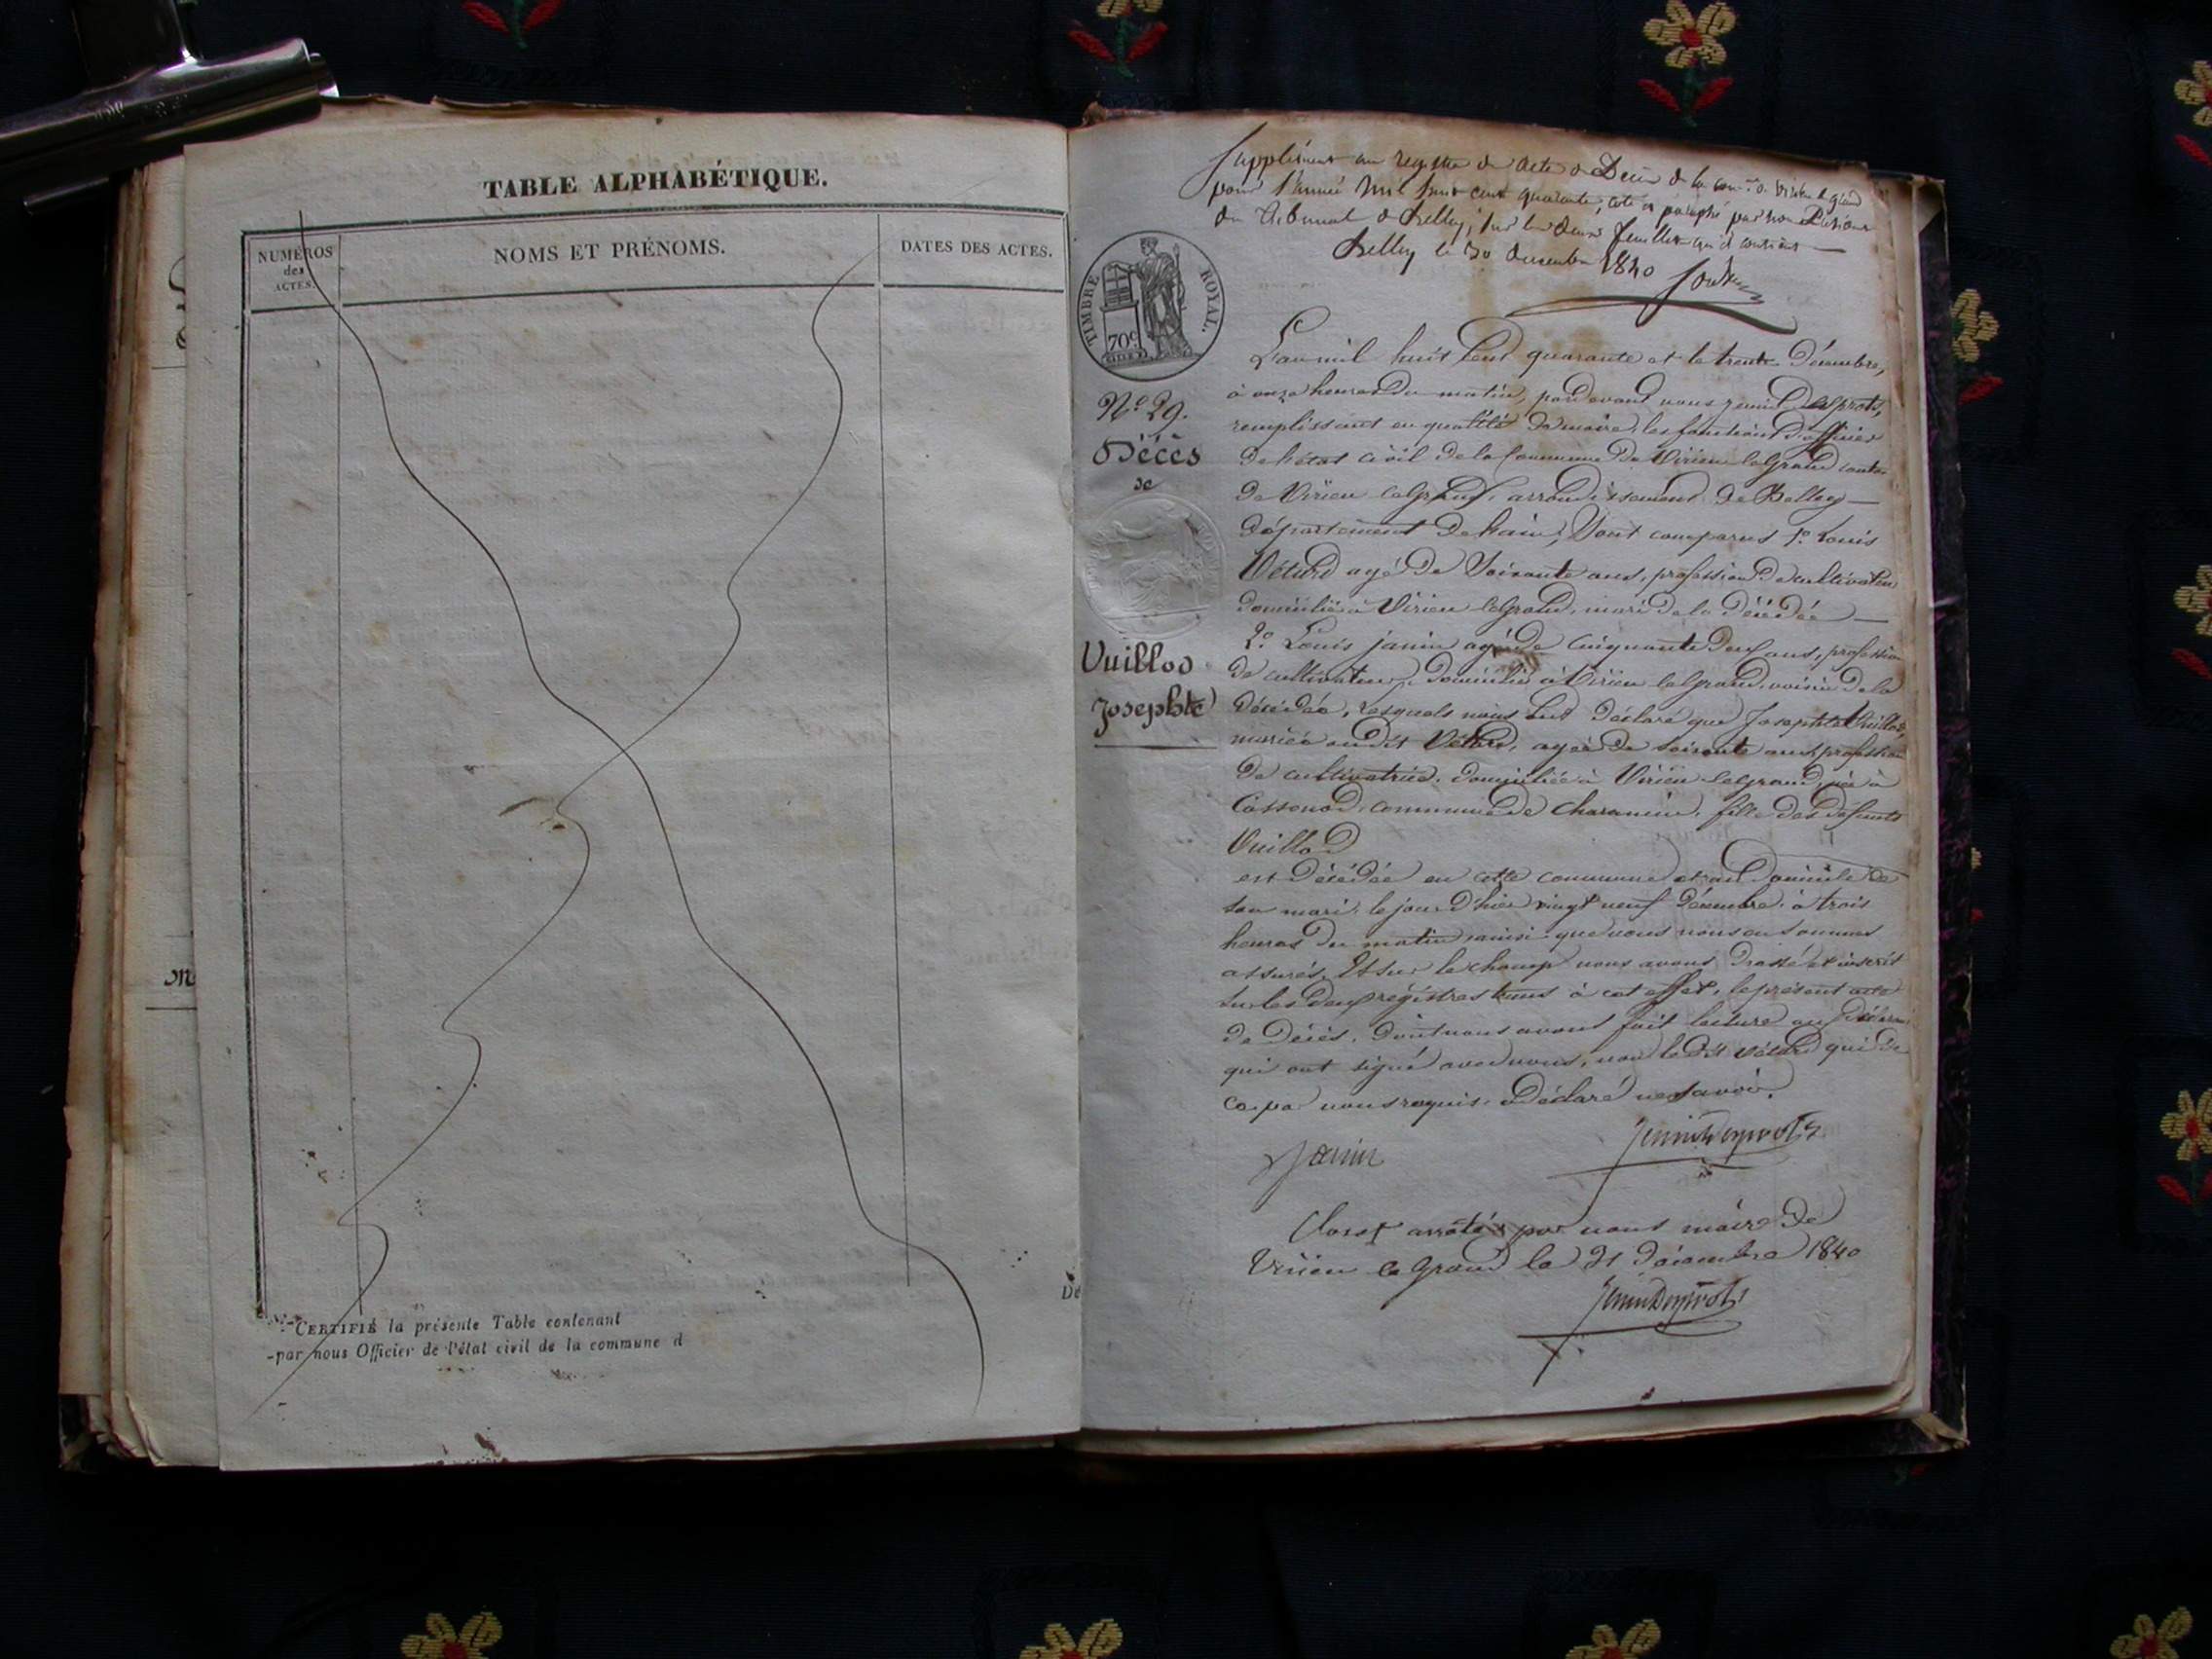 TABLE ALPHABÉTIQUE.
NUMÉROS
des
ACTES.
NOMS ET PRÉNOMS.
DATES DES ACTES.
CERTIFIÉ la présente Table contenant
par nous Officier de l'état civil de la commune d
Supplément au registre de acte de Décès de la de Virieu le grand
pour l'année mil huit cent quarante, coté et paraphé par nous
du Tribunal de Belley, sur les deux feuillets qu'il contient
Belley le 30 decembre 1840
TIMBRE ROYAL.
70c
N.º 29.
Décès
de
Vuillod
Josephte
L'an mil huit cent quarante et le trente Décembre,
à onze heures du matin, par devant nous
remplissant en qualité de maire, les fonctions d'officier
de l'état civil de la Commune de Virieu le Grand canton
de Virieu le Grand, arrondissement de Belley
département de l'ain, Sont comparus 1.º Louis
Vétard agé de Soixante ans, profession de cultivateur
domicilié à Virieu le Grand, mari de la Décédée
2.º Louis janin agé de cinquante deux ans, profession
de cultivateur, domicilié à Virieu le Grand, voisin de la
Décédée, Lesquels nous ont déclaré que Josephte Vuillod,
mariée au dit Vétard, agée de soixante ans, profession
de cultivatrice, domiciliée à Virieu le grand, née à
Cossonod, commune de Charancin, fille des defunts
Vuillod
est Décédée en cette commune et au Domicile de
son mari, le jour d'hier vingt neuf Décembre, à trois
heures du matin, ainsi que nous nous en sommes
assurés, Et sur le champ nous avons Dressé et inscrit
sur les deux registres tenus à cet effet, le présent acte
de Décès, dont nous avons fait lecture aux Déclarans
qui ont signé avec nous, non le dit Vétard qui de
ce par nous requis, a Déclaré ne savoir.
Janin
Clos et arrêté par nous maire de
Virieu le Grand le 31 Décembre 1840